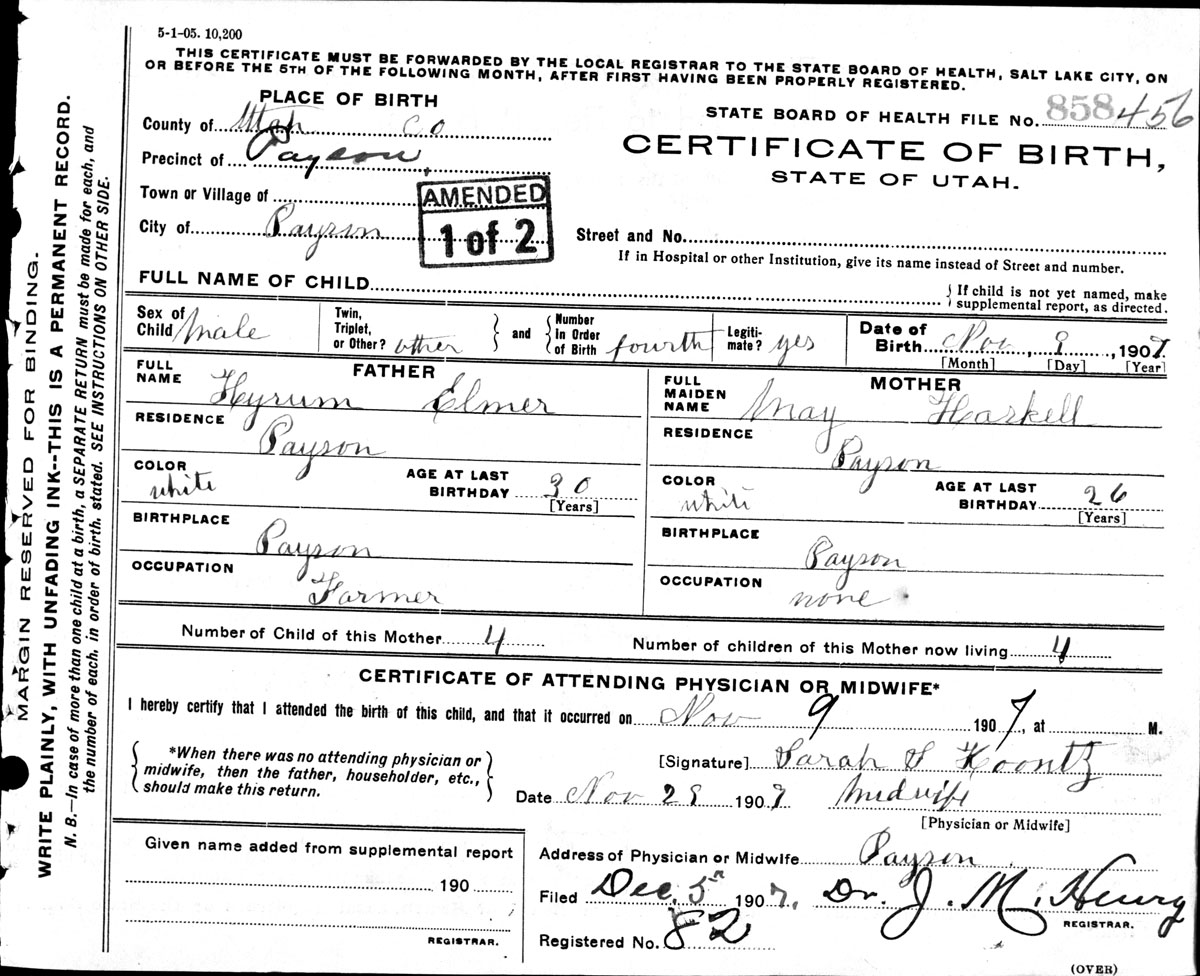 5-1-05. 10,200
THIS CERTIFICATE MUST BE FORWARDED BY THE LOCAL REGISTRAR TO THE STATE BOARD OF HEALTH, SALT LAKE CITY, ON
OR BEFORE THE 5TH OF THE FOLLOWING MONTH, AFTER FIRST HAVING BEEN PROPERLY REGISTERED.
PLACE OF BIRTH
County of Utah Co
Precinct of Payson
Town or Village of
City of Payson
AMENDED
1 of 2
STATE BOARD OF HEALTH FILE No. 858 456
CERTIFICATE OF BIRTH,
STATE OF UTAH.
Street and No.
If in Hospital or other Institution, give its name instead of Street and number.
FULL NAME OF CHILD
If child is not yet named, make
supplemental report, as directed.
Sex of Child Male
Twin, Triplet, or Other? other
and
Number in Order of Birth fourth
Legiti- mate? yes
Date of Birth Nov, 9, 1907
[Month] [Day] [Year]
FATHER
FULL NAME Hyrum Elmer
RESIDENCE
Payson
COLOR white
AGE AT LAST BIRTHDAY 30
[Years]
BIRTHPLACE
Payson
OCCUPATION
Farmer
MOTHER
FULL MAIDEN NAME May Haskell
RESIDENCE
Payson
COLOR white
AGE AT LAST BIRTHDAY 26
[Years]
BIRTHPLACE
Payson
OCCUPATION
none
Number of Child of this Mother 4
Number of children of this Mother now living 4
CERTIFICATE OF ATTENDING PHYSICIAN OR MIDWIFE*
I hereby certify that I attended the birth of this child, and that it occurred on Nov 9 1907, at M.
*When there was no attending physician or
midwife, then the father, householder, etc.,
should make this return.
[Signature] Sarah S Koontz
Date Nov 29 1907 Midwife
[Physician or Midwife]
Given name added from supplemental report
190
REGISTRAR.
Address of Physician or Midwife Payson
Filed Dec. 5 1907. Dr. J. M. Henry
REGISTRAR.
Registered No. 82
(OVER)
MARGIN RESERVED FOR BINDING.
WRITE PLAINLY, WITH UNFADING INK--THIS IS A PERMANENT RECORD.
N. B.—In case of more than one child at a birth, a SEPARATE RETURN must be made for each, and
the number of each, in order of birth, stated. SEE INSTRUCTIONS ON OTHER SIDE.